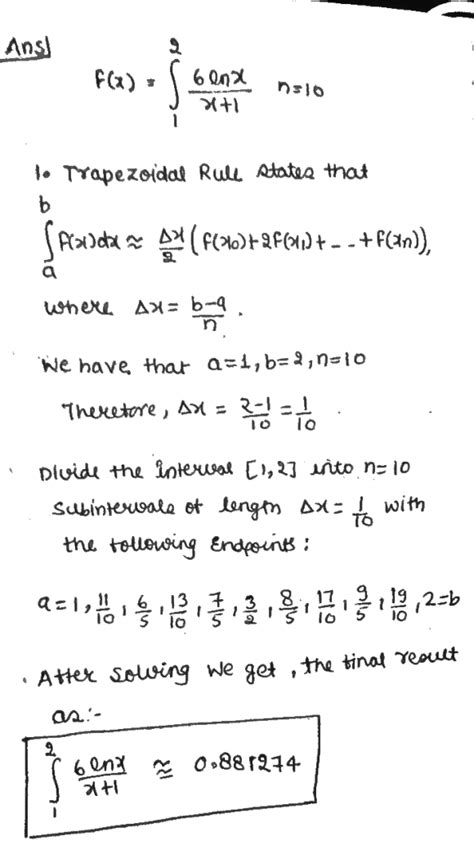 Ans]
f(x) = ∫₁² 6 lnx / x+1 n=10
1. Trapezoidal Rule states that
∫ₐᵇ f(x)dx ≈ Δx/2 (f(x0)+2f(x1)+--+f(xn)),
where Δx = b-a/n.
We have that a=1, b=2, n=10
Therefore, Δx = 2-1/10 = 1/10.
Divide the interval [1,2] into n=10
Subintervals of length Δx = 1/10 with
the following Endpoints:
a=1, 11/10, 6/5, 13/10, 7/5, 3/2, 8/5, 17/10, 9/5, 19/10, 2=b
. After solving we get, the final result
as:-
∫₁² 6 lnx / x+1 ≈ 0.881274